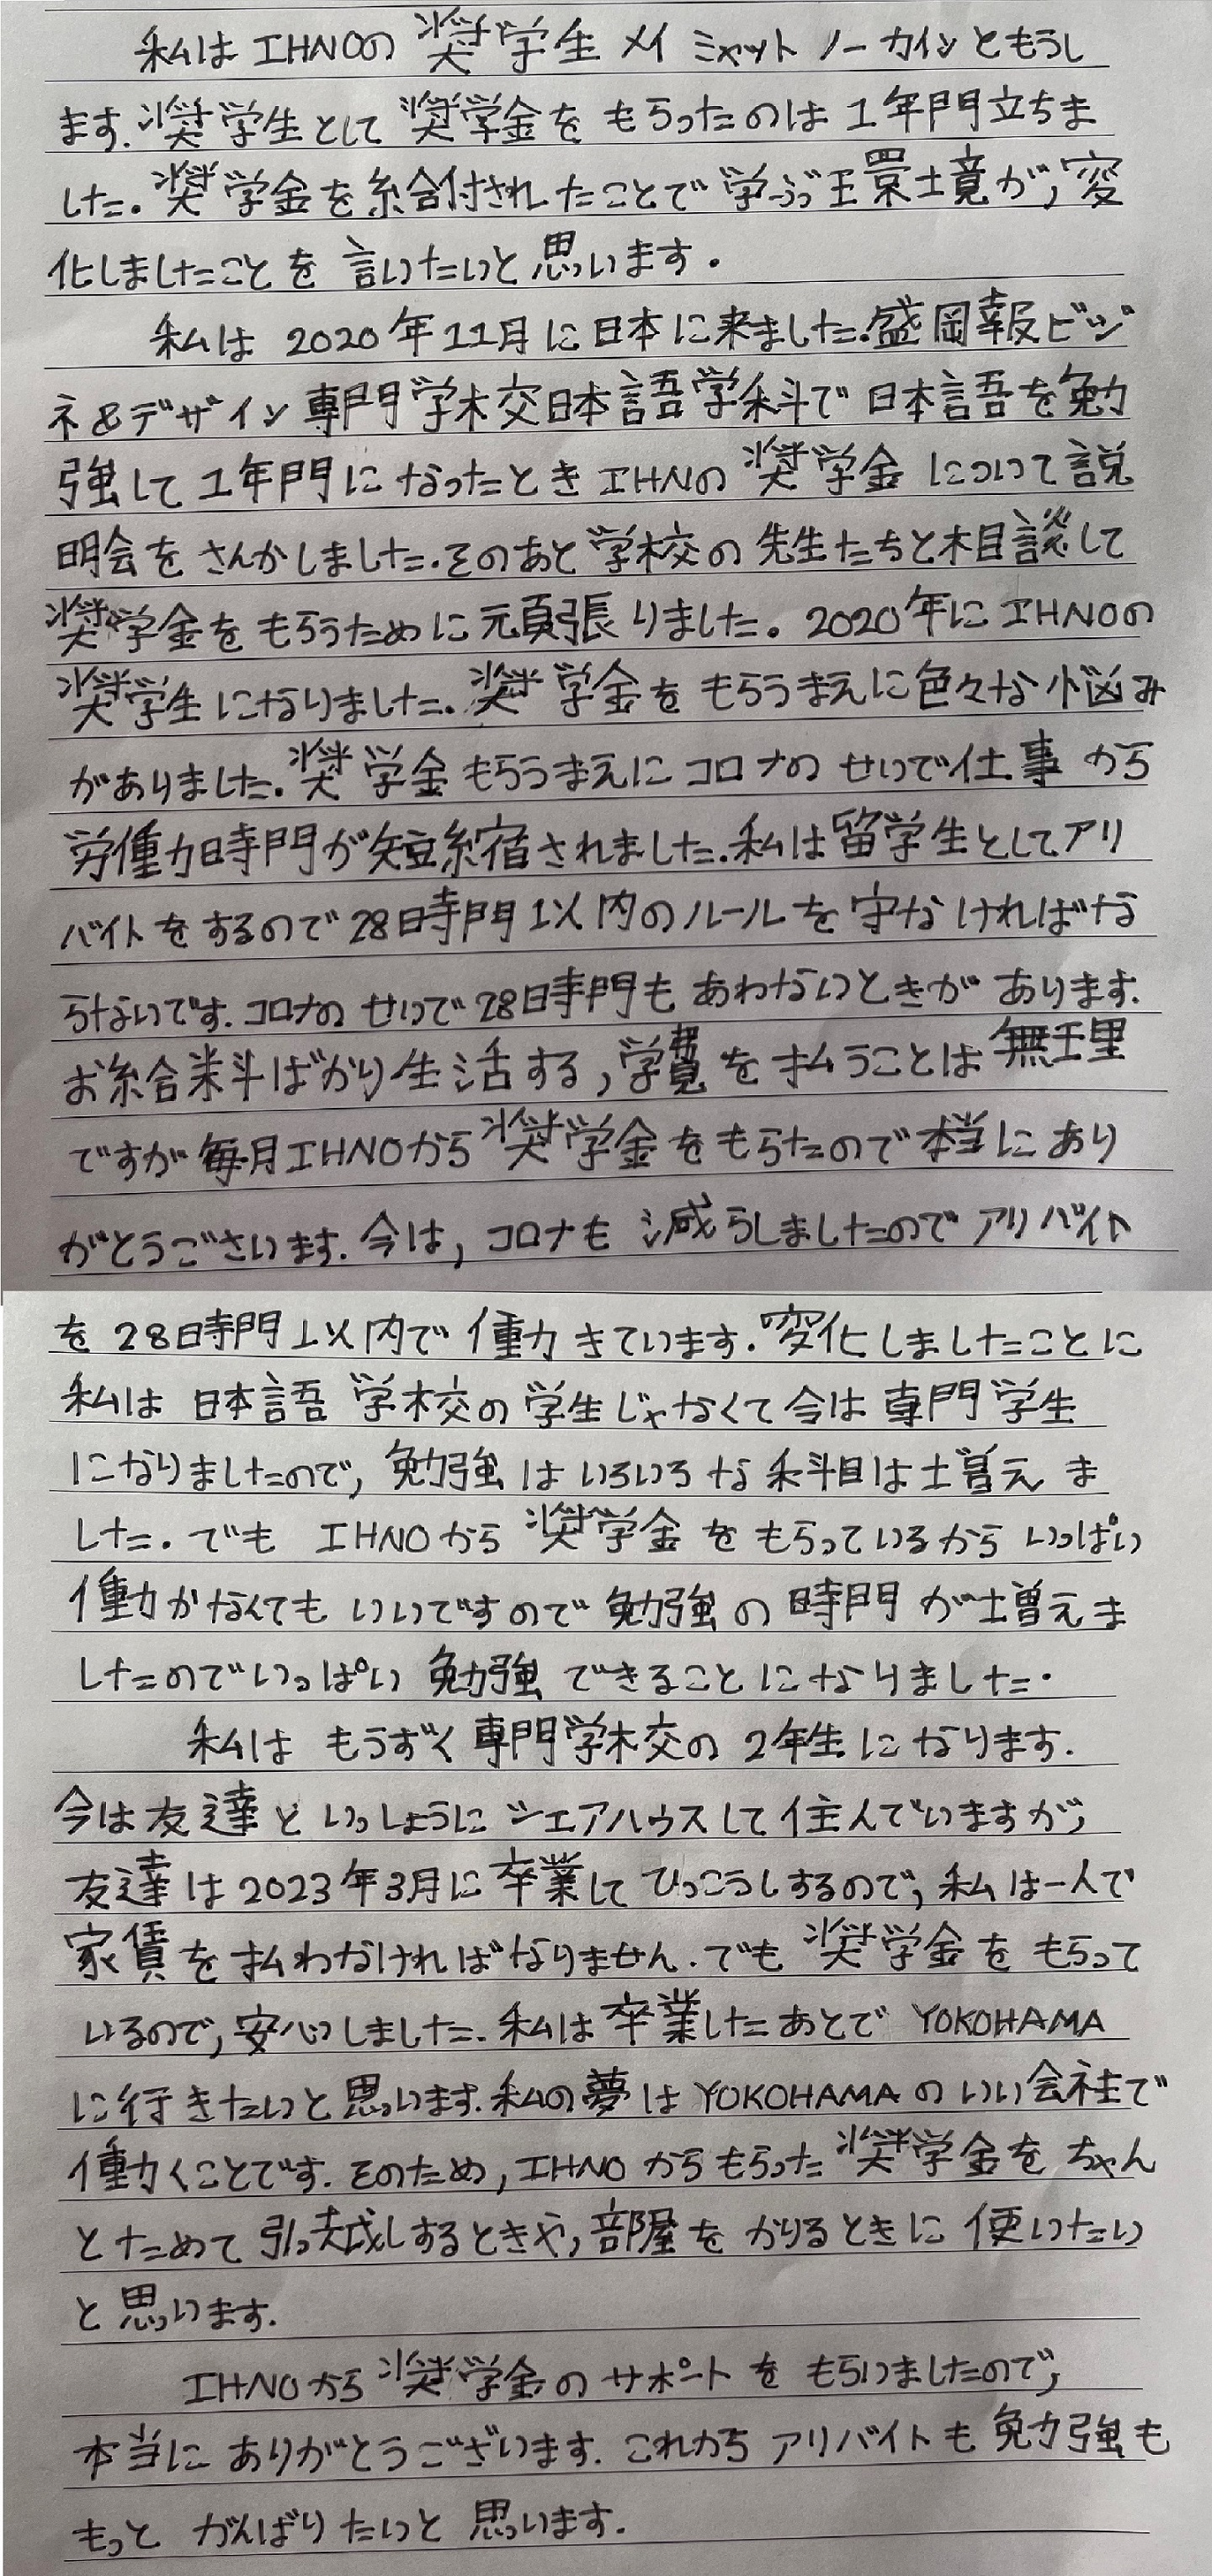 私はIHNOの奨学生メイ ミャット ノーカインともうし
ます.奨学生として奨学金をもらったのは1年門立ちま
した.奨学金を給付されたことで学ぶ環境が,変
化しましたことを言いたいと思います.
私は2020年11月に日本に来ました.盛岡報ビジ
ネ&デザイン専門学校日本語学科で日本語を勉
強して1年門になったときIHNの奨学金について説
明会をさんかしました.そのあと学校の先生たちと相談して
奨学金をもらうために頑張りました。2020年にIHNOの
奨学生になりました.奨学金をもらうまえに色々な悩み
がありました.奨学金もらうまえにコロナのせいで仕事から
労働時門が短縮されました.私は留学生としてアリ
バイトをするので28時門以内のルールを守なければな
らないです.コロナのせいで28時門もあわないときがあります.
お給料ばかり生活する,学費を払うことは無理
ですが毎月IHNOから奨学金をもらたので本当にあり
がとうごさいます.今は,コロナも減らしましたのでアリバイト
を28時門以内で働きています.変化しましたことに
私は日本語学校の学生じゃなくて今は専門学生
になりましたので,勉強はいろいろな科目は増えま
した.でも IHNOから奨学金をもらっているからいっぱい
働かなくてもいいですので勉強の時門が増えま
したのでいっぱい勉強できることになりました.
私はもうずく専門学校の2年生になります.
今は友達といっしょうにシェアハウスして住んでいますが,
友達は2023年3月に卒業してひっこうしするので,私は一人で
家賃を払わなければなりません.でも奨学金をもらって
いるので,安心しました.私は卒業したあとでYOKOHAMA
に行きたいと思います.私の夢はYOKOHAMAのいい会社で
働くことです.そのため,IHNOからもらった奨学金をちゃん
とためて引っ越しするときや,部屋をかりるときに使いたい
と思います.
IHNOから奨学金のサポートをもらいましたので,
本当にありがとうございます.これからアリバイトも勉強も
もっとがんばりたいと思います.